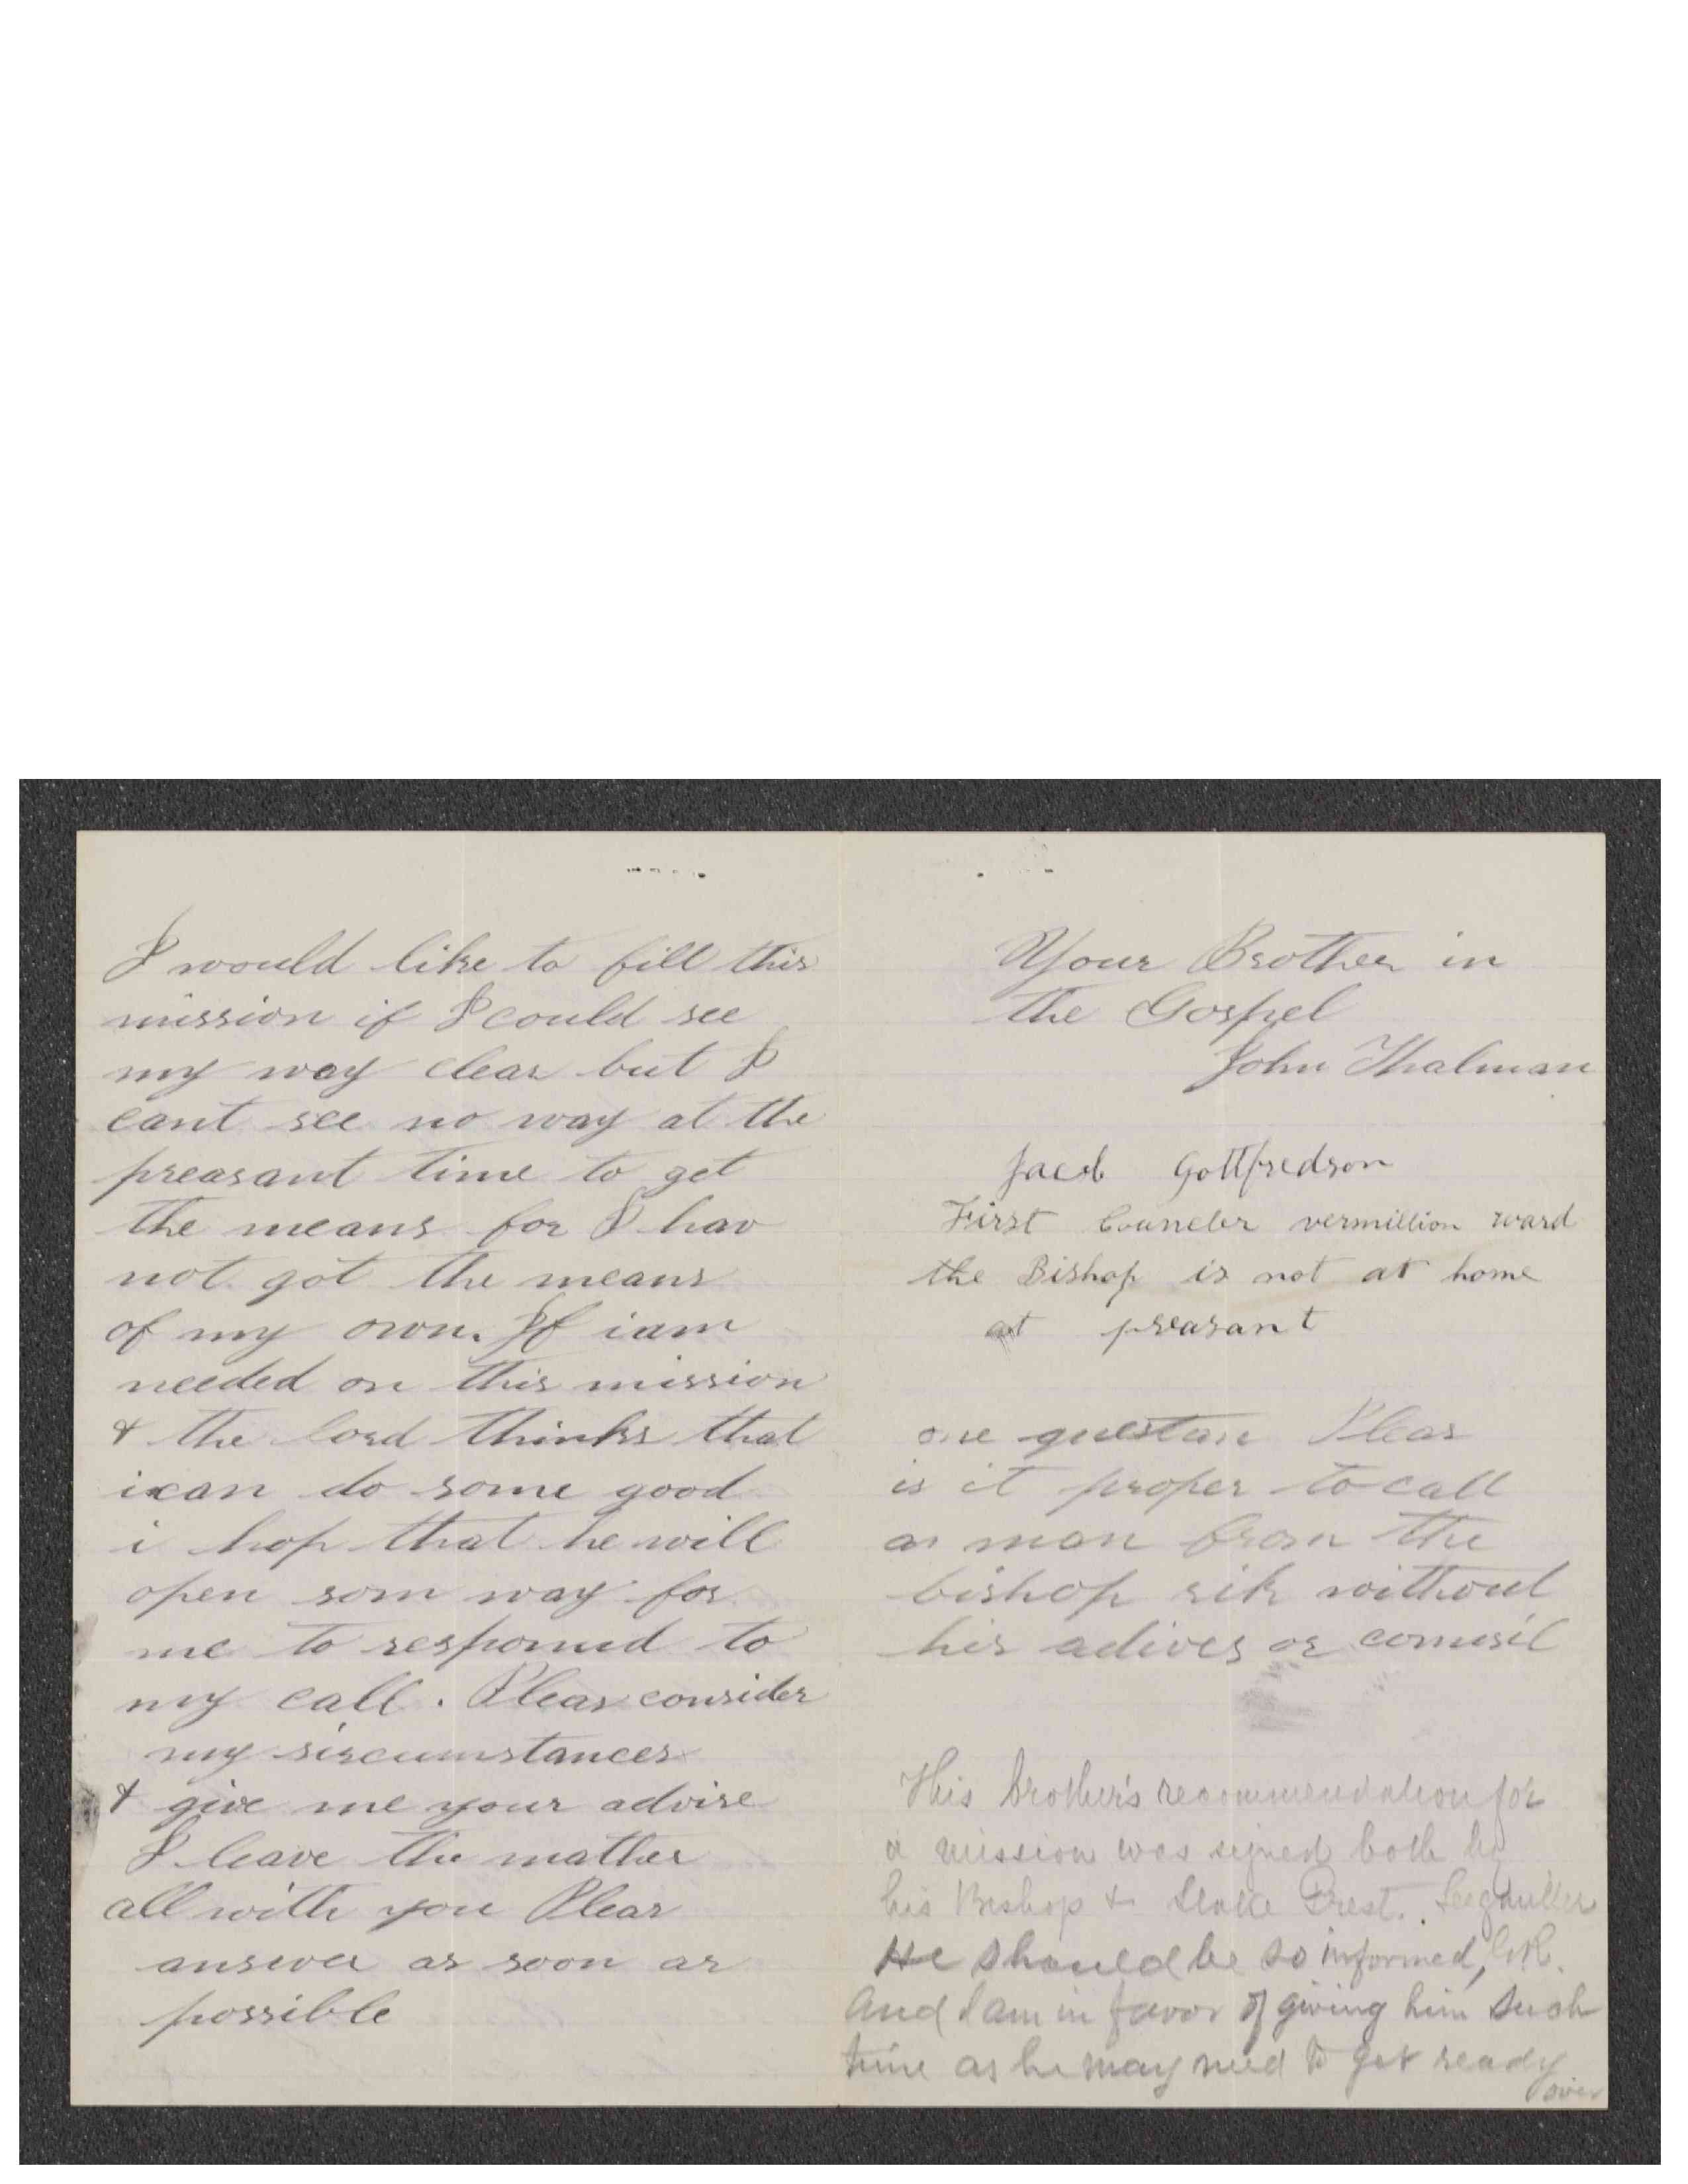 I would like to fill this
mission if I could see
my way clear but I
cant see no way at the
preasant time to get
the means for I hav
not got the means
of my own. If iam
needed on this mission
& the lord thinks that
ican do some good
i hop that he will
open som way for
me to respomd to
my call. Pleas consider
my sircumstances
& give me your advise
I leave the mather
all with you Pleas
answer as soon as
possible
Your Brother in
the Gospel
John Thalman
Jacob Gottfredson
First Counceler vermillion ward
the Bishop is not at home
at preasant
one questan Pleas
is it proper to call
a man from the
bishop sik without
his adives or
This brother's recommendation for
a mission was signed both by
his Bishop & Stake Prest. Seegmiller
He should be so informed,
And I am in favor of giving him such
time as he may need to get ready
over